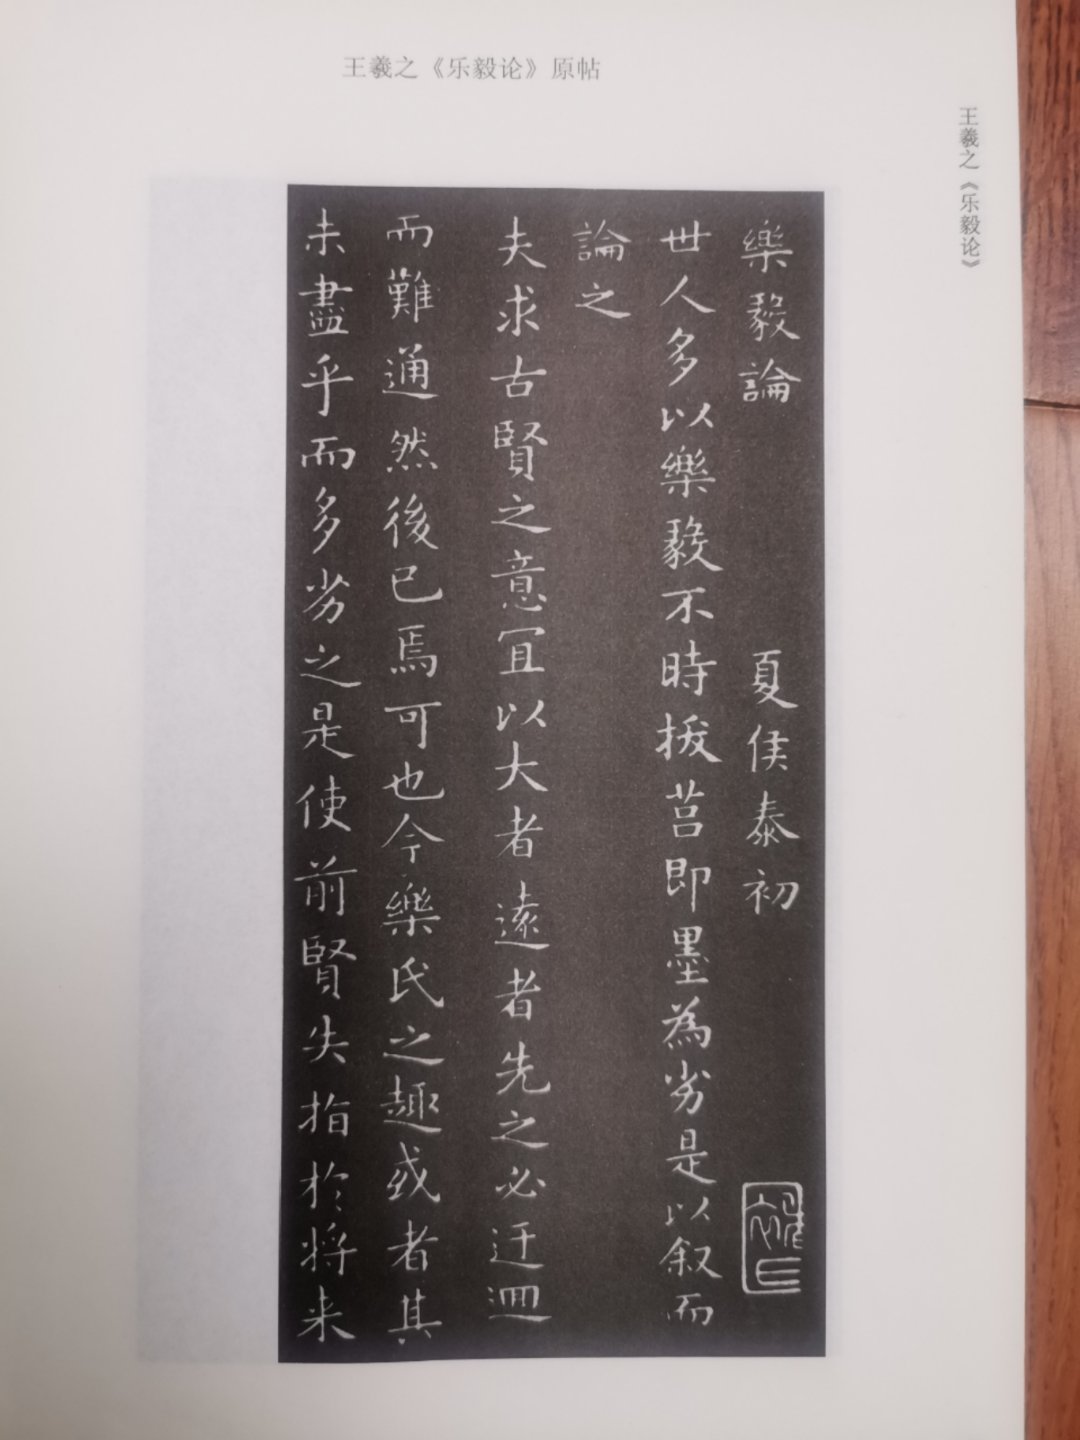 王羲之《乐毅论》原帖
王羲之《乐毅论》
樂毅論 夏侯泰初
世人多以樂毅不時拔莒即墨為劣是以叙而
論之
夫求古賢之意宜以大者遠者先之必迂迴
而難通然後已焉可也今樂氏之趣或者其
未盡乎而多劣之是使前賢失指於将来